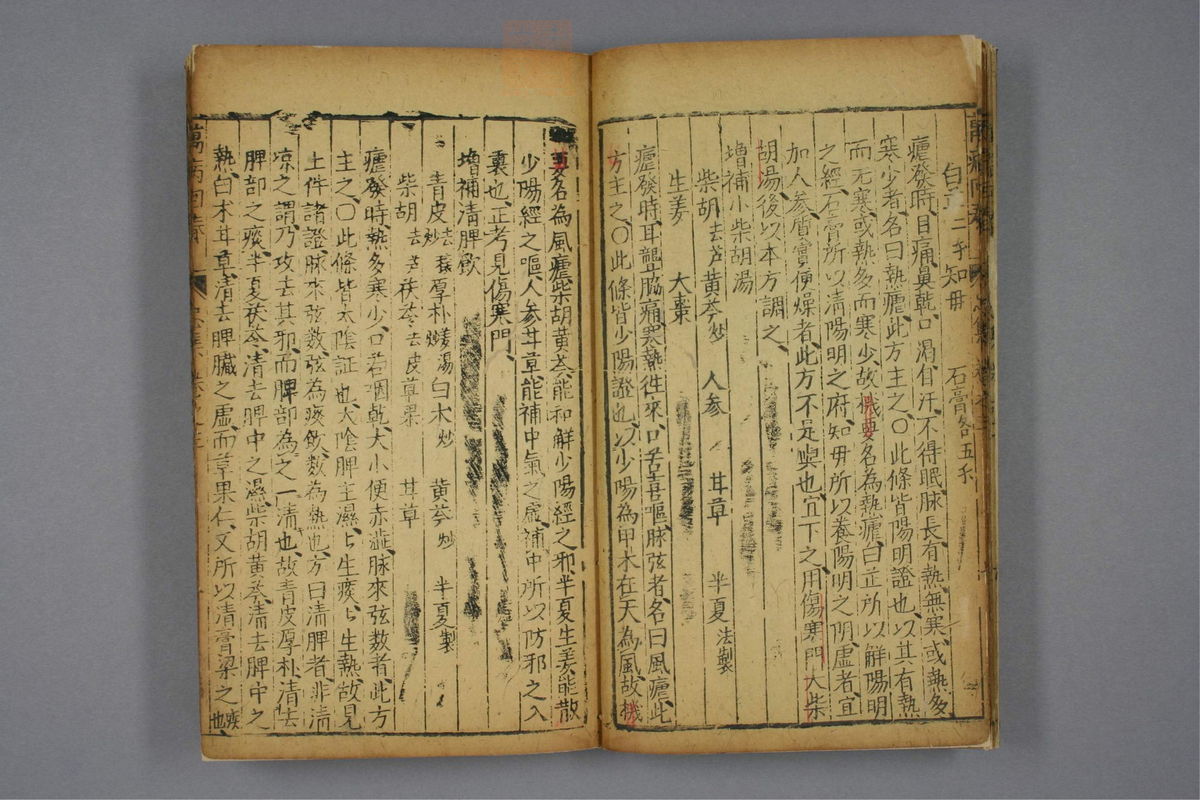 白芷二錢 知母 石膏各五錢
瘧發時目痛鼻乾口渴自汗不得眠脉長有熱無寒或熱多
寒少者名曰熱瘧此方主之〇此條皆陽明證也以其有熱
而无寒或熱多而寒少故機要名為熱瘧白芷所以解陽明
之經石膏所以清陽明之府知毋所以養陽明之阴虛者宜
加人參質實便燥者此方不足與也宜下之用傷寒門大柴
胡湯後以本方調之
增補小柴胡湯
柴胡去芦 黃芩炒 人參 甘草 半夏法製
生姜 大棗
瘧發時耳聾脇痛寒熱徃來口苦喜嘔脉弦者名曰風瘧此
方主之〇此條皆少陽證也以少陽為甲木在天為風故機
要名為風瘧柴胡黃芩能和解少陽經之邪半夏生姜能散
少陽經之嘔人参甘草能補中氣之虛補中所以防邪之入
裏也正考見傷寒門
增補清脾飲
青皮去穰炒 厚朴煖湯 白术炒 黃芩炒 半夏製
柴胡去芦 茯苓去皮 草果 甘草
瘧發時熱多寒少口苦咽乾大小便赤澁脉來弦数者此方
主之〇此條皆太陰証也太陰脾主濕ヒ生痰ヒ生熱故見
上件諸證脉來弦数弦為痰飲数為熱也方曰清脾者非清
凉之謂乃攻去其邪而脾部為之一清也故青皮厚朴清去
脾部之痰半夏茯苓清去脾中之濕柴胡黃芩清去脾中之
熱白术甘草清去脾臟之虛而草果仁又所以清膏粱之痰也
萬病回春